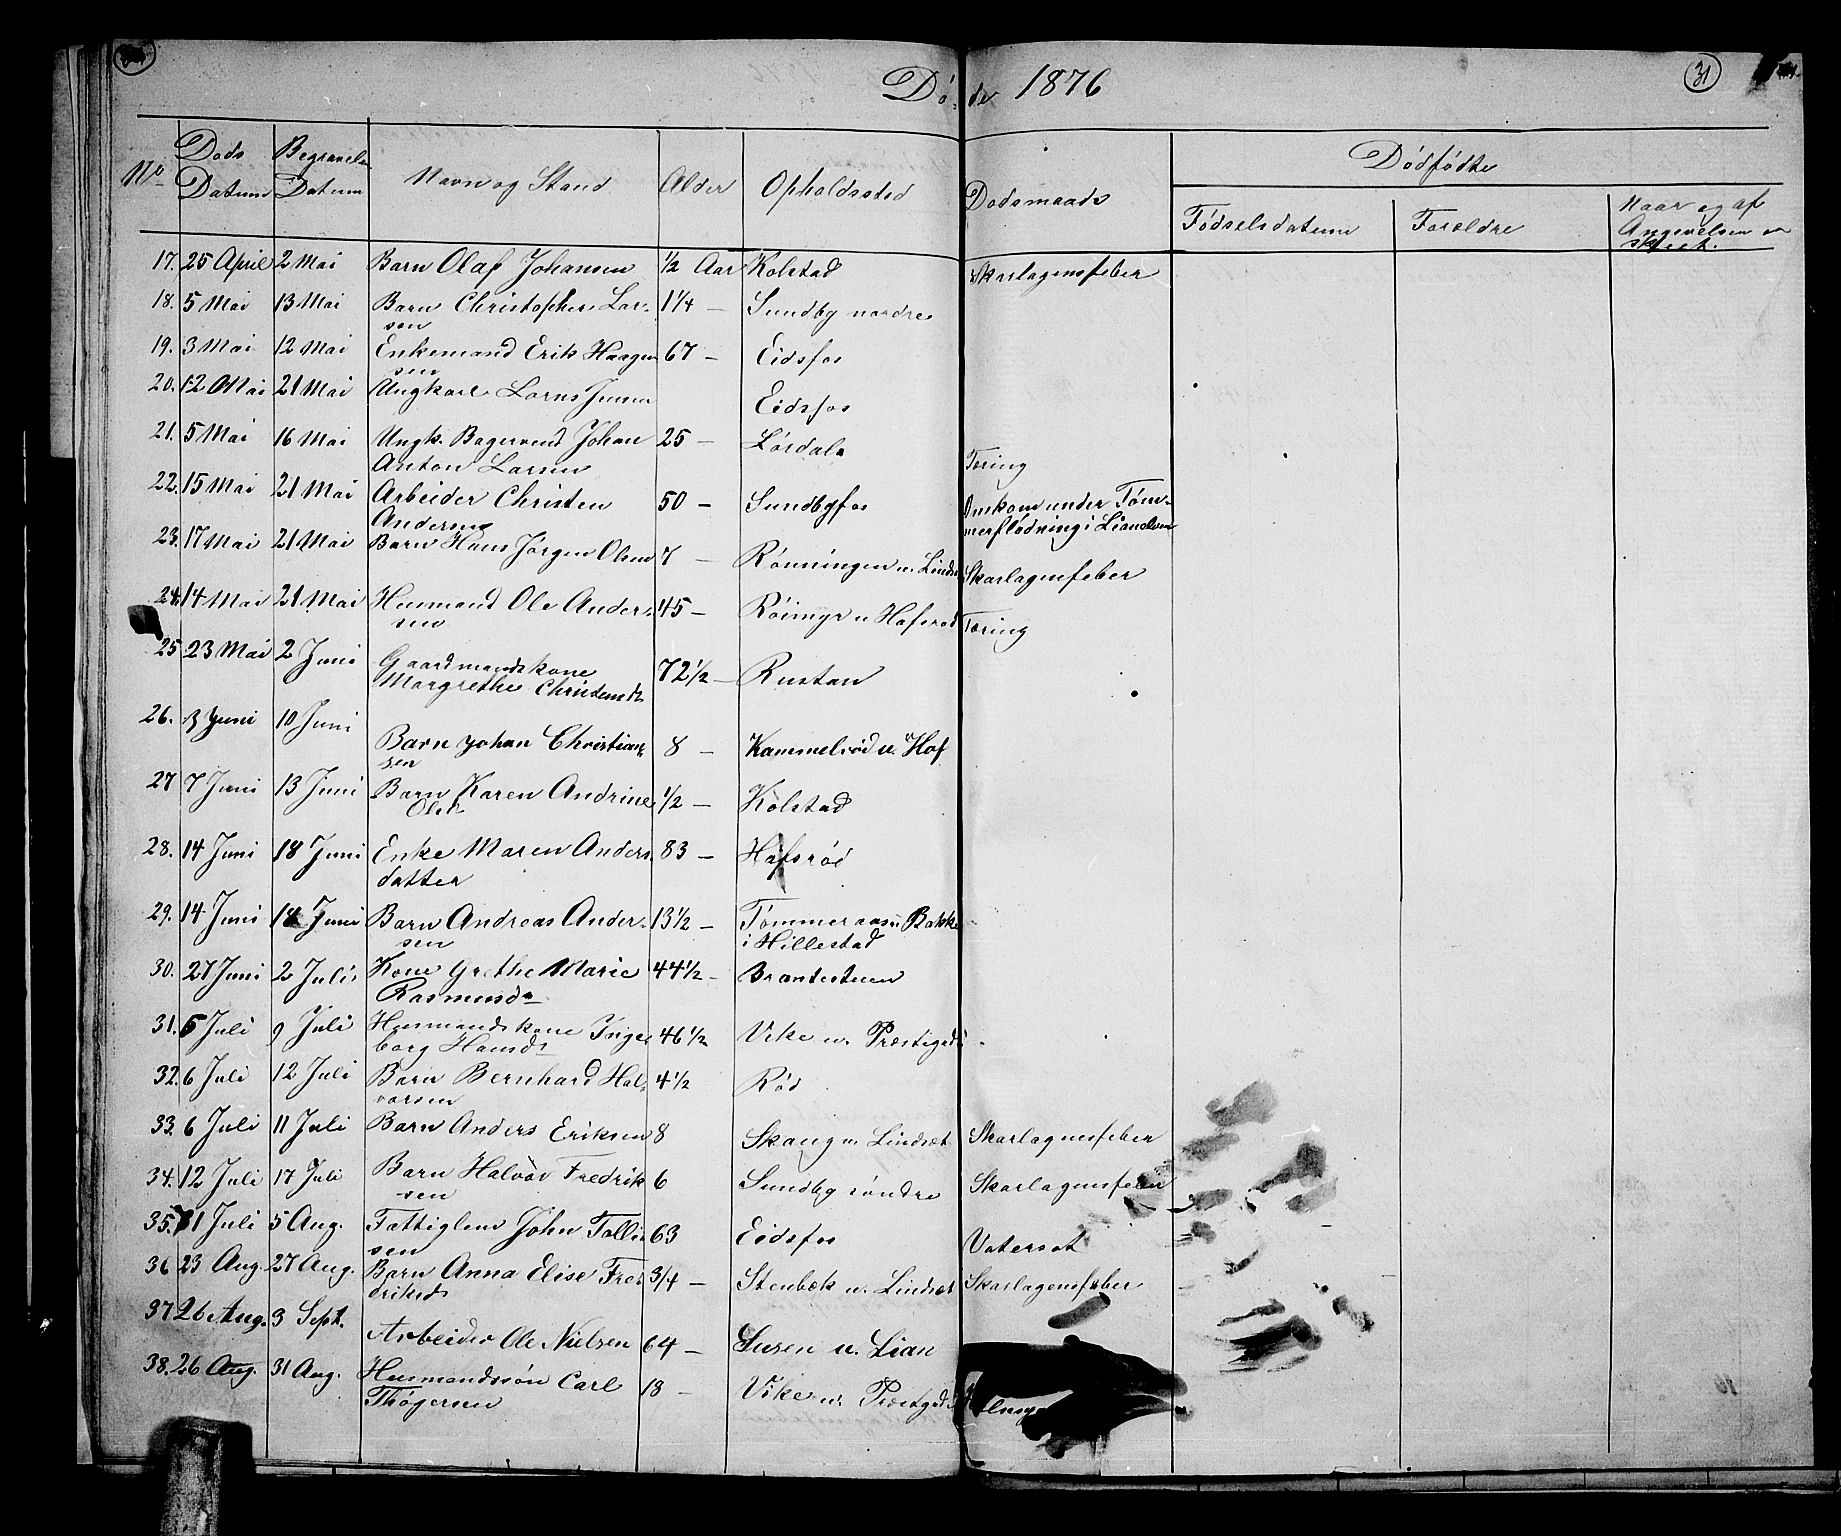 31
Døde 1876
No
Døds Datum
Begravelse Datum
Navn og Stand
Alder
Opholdssted
Dødsmaade
Dødfødte
Fødselsdatum
Forældre
Naar og af
Angivelsen er
skeet.
17. 25 April 2 Mai Barn Olaf Johansen 1/2 Aar Kolstad Skarlagensfeber
18. 5 Mai 13 Mai Barn Christopher Lar- 1 1/4 — Sundby nordre
sen
19. 3 Mai 12 Mai Enkemand Erik Haagen 67 — Eidsfos
sen
20. 12 Mai 21 Mai Ungkarl Lorns Jensen Eidsfos
21. 5 Mai 16 Mai Ungk. Bagersvend Johan 25 — Lørdal
Anton Larsen Tæring
22. 15 Mai 21 Mai Arbeider Christen 50 — Sundbyfos Omkom under Tøm-
Andersen merflødning i Lianelven
23. 17 Mai 21 Mai Barn Hans Jørgen Olsen 7 — Rønningen u. Lindsæt Skarlagensfeber
24. 14 Mai 21 Mai Husmand Ole Ander- 45 — Røimyr u Hafsrød Tæring
sen
25 23 Mai 2 Juni Gaardmandskone 72 1/2 — Rustan
Margrethe Christensd.
26. 3 Juni 10 Juni Barn Johan Christian 8 — Kammelrød u. Hof
sen
27 7 Juni 13 Juni Barn Karen Andrine 1/2 — Kolstad
Olsd
28. 14 Juni 18 Juni Enke Maren Anders 83 — Hafsrød
datter
29. 14 Juni 18 Juni Barn Andreas Ander- 13 1/2 — Tømmeraas u Bakke
sen i Hillestad
30. 27 Juni 2 Juli Kone Grethe Marie 44 1/2 — Brantestuen
Rasmusd.
31. 5 Juli 9 Juli Husmandskone Inge 46 1/2 Vike u. Præstegd
borg Hansd.
32. 6 Juli 12 Juli Barn Bernhard Hal 4 1/2 Rød
vorsen
33. 6 Juli 11 Juli Barn Anders Eriksen 8 Skaug u. Lindsæt Skarlagensfeber
34. 12 Juli 17 Juli Barn Halvor Fredrik 6 Sundby søndre Skarlagensfeber
sen
35. 31 Juli 5 Aug. Fattiglem John Tolli 63 Eidsfos Vatersot
sen
36 23 Aug. 27 Aug. Barn Anna Elise Fre 3/4 — Stenbæk u. Lindsæt Skarlagensfeber
driksd
37 26 Aug. 3 Sept. Arbeider Ole Nielsen 64 — Lusen u. Lian
38. 26 Aug. 31 Aug. Husmandssøn Carl 18 — Vike u. Præstegd
Thøgersen